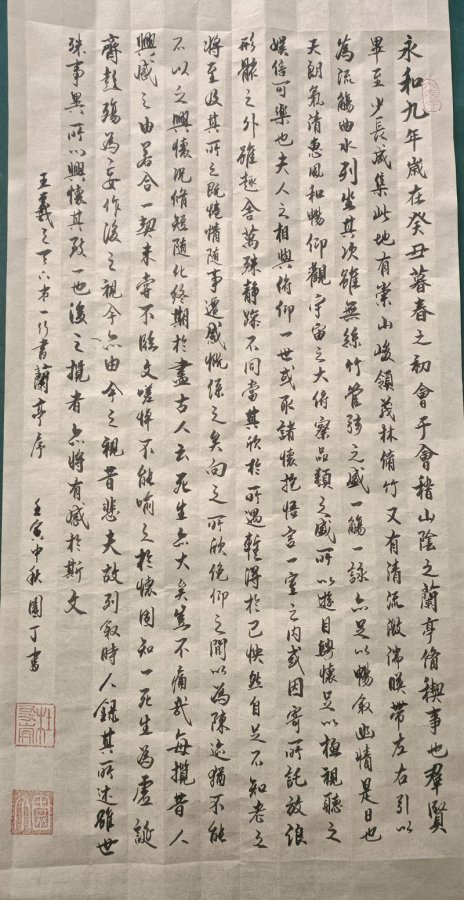 永和九年歲在癸丑暮春之初會于會稽山陰之蘭亭脩稧事也群賢
畢至少長咸集此地有崇山峻領茂林脩竹又有清流激湍暎帶左右引以
為流觴曲水列坐其次雖無絲竹管弦之盛一觴一詠亦足以暢敘幽情是日也
天朗氣清惠風和暢仰觀宇宙之大俯察品類之盛所以遊目騁懷足以極視聽之
娛信可樂也夫人之相與俯仰一世或取諸懷抱悟言一室之內或因寄所託放浪
形骸之外雖趣舍萬殊靜躁不同當其欣於所遇暫得於己怏然自足不知老之
將至及其所之既惓情隨事遷感慨係之矣向之所欣俛仰之間以為陳迹猶不能
不以之興懷況脩短隨化終期於盡古人云死生亦大矣豈不痛哉每攬昔人
興感之由若合一契未嘗不臨文嗟悼不能喻之於懷固知一死生為虛誕
齊彭殤為妄作後之視今亦由今之視昔悲夫故列敘時人錄其所述雖世
殊事異所以興懷其致一也後之攬者亦將有感於斯文
王羲之天下第一行書蘭亭序 壬寅中秋 園丁書